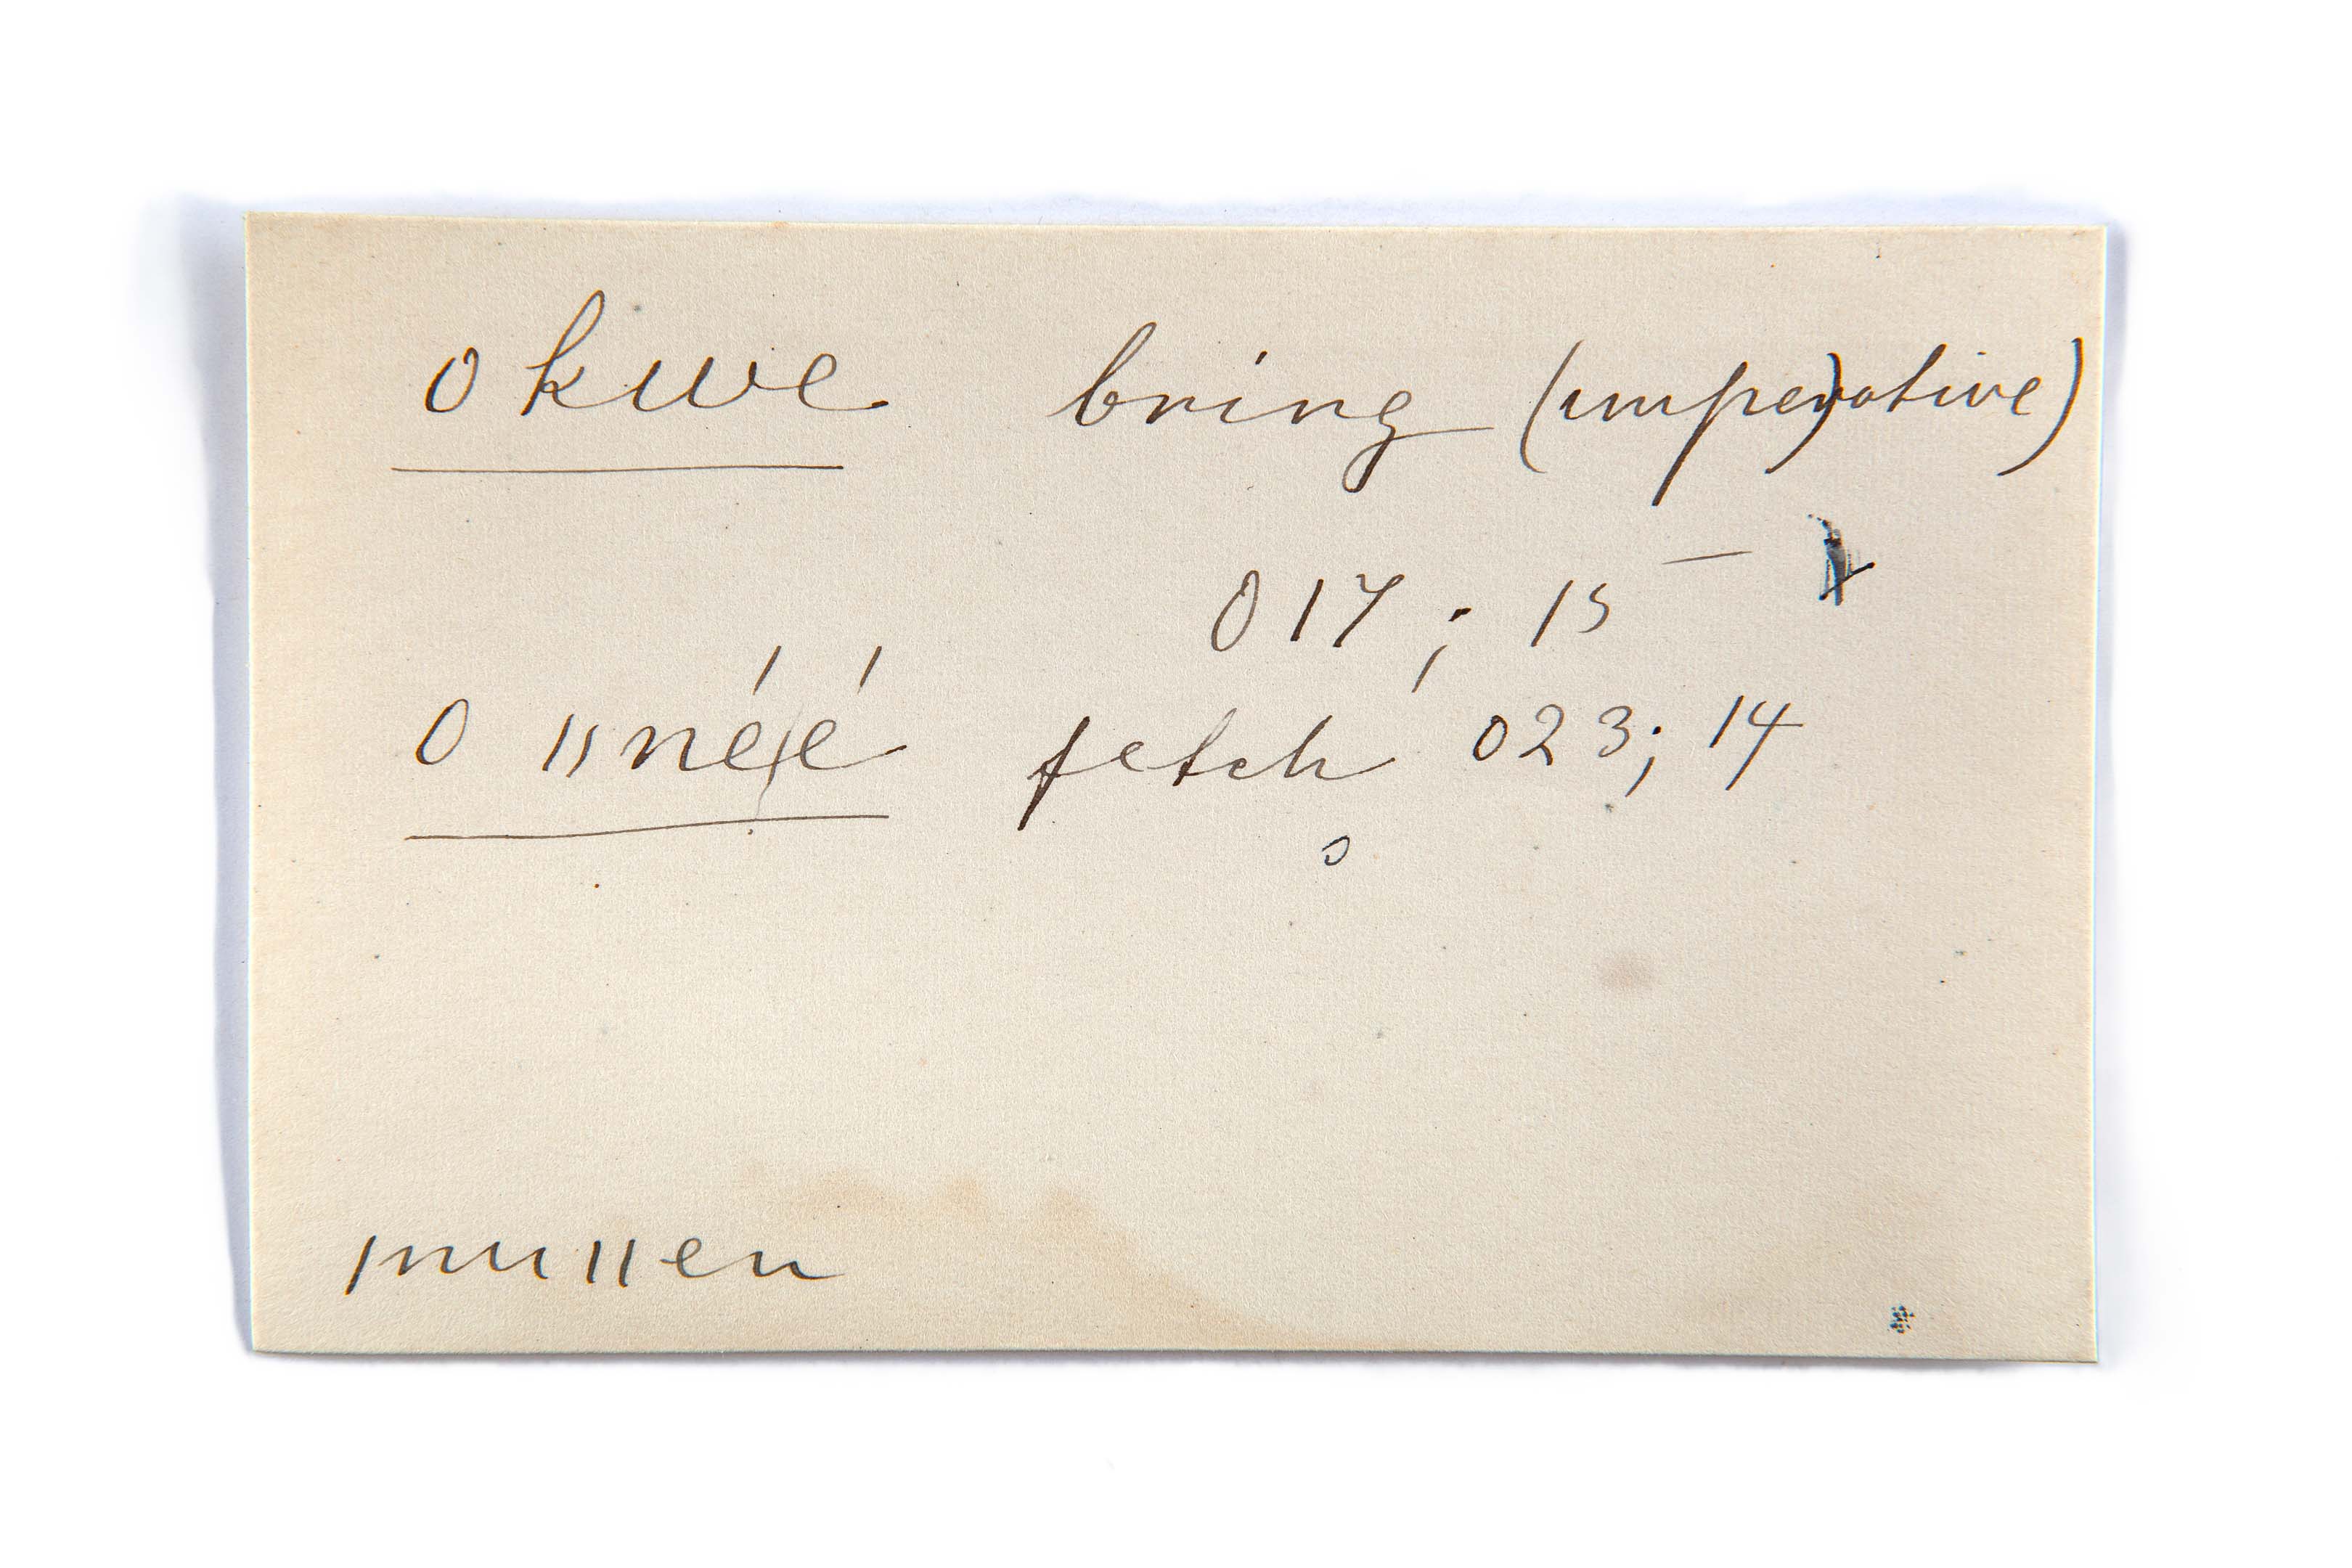 okwe bring (imperative)
017; 15
o ǁnéé fetch 023; 14